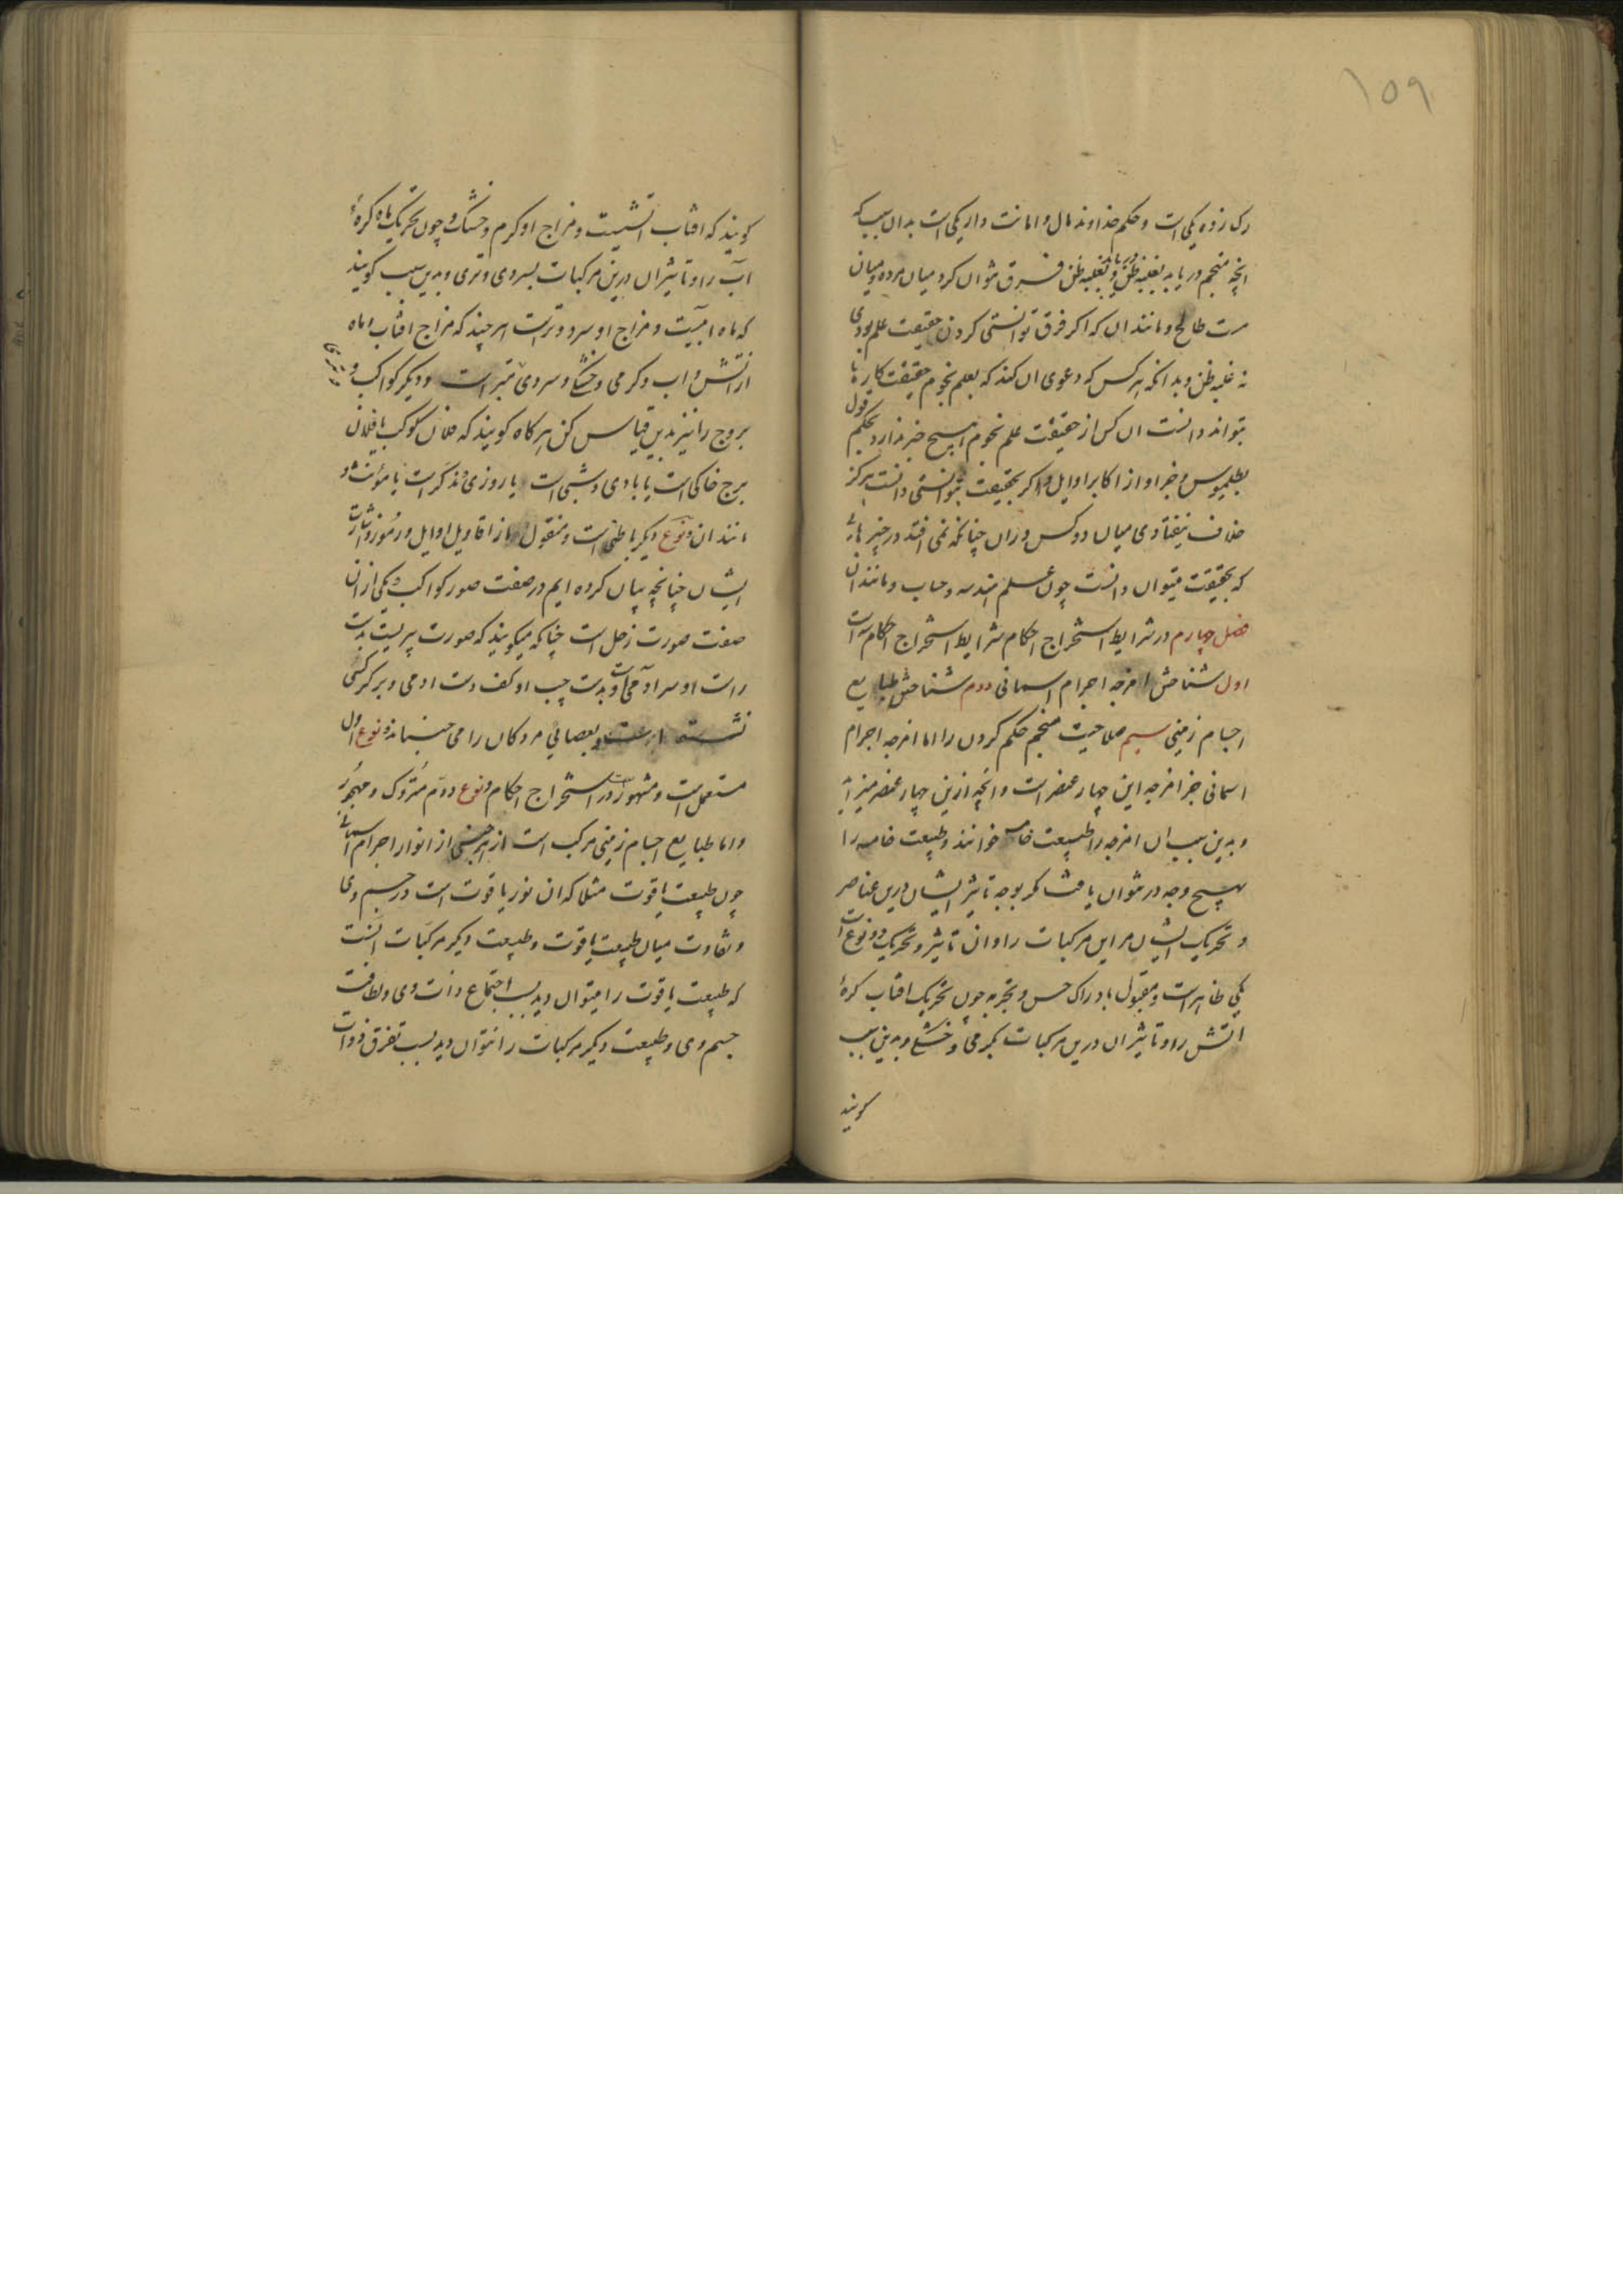 ۱۵۹
رک زده یکی است و حکم خداوند مال و امانت دار یکی است بدان سبب که
انچه منجم دریابد بغلبه ظن دریابد و بغلبه ظن فرق نتوان کرد میان مرده و میان
مرت طالح و مانند ان که اگر فرق توانستی کردن حقیقت علم بودی
نه غلبه ظن و بدانکه هر کس که دعوی ان کند که بعلم نجوم حقیقت کارها
بتواند دانست ان کس از حقیقت علم نجوم هیچ خبر ندارد بحکم قول
بطلمیوس و جز او از اکابر اوایل و اکر بحقیقت بتوانستی دانست هرکز
خلاف نیفتادی میان دو کس دران چنانکه نمی افتد در چیزهائی
که بحقیقت میتوان دانست چون علم هندسه و حساب و مانند ان
فصل چهارم در شرایط استخراج احکام شرایط استخراج احکام سه است
اول شناختن امزجه اجرام اسمانی دوم شناختن طبایع
اجسام زمینی سیم صلاحیت منجم حکم کردن را اما امزجه اجرام
اسمانی جز امزجه این چهار عنصر است و انچه ازین چهار عنصر میزاید
و بدین سبب ان امزجه را طبیعت خامسه خوانند و طبیعت خامسه را
بهیچ وجه در نتوان یافت مکر بوجه تاثیر ایشان درین عناصر
و تحریک ایشان مر این مرکبات را و ان تاثیر و تحریک دو نوع است
یکی ظاهر است و مقبول بادراک حس و تجربه چون تحریک افتاب کرهٔ
اتش را و تاثیر ان درین مرکبات بکرمی و خشکی و بدین سبب
کویند
کویند که افتاب اتشیست و مزاج او کرم و خشک و چون تحریک ماه کرهٔ
آب را و تاثیر ان درین مرکبات بسردی و تری و بدین سبب کویند
که ماه ابیست و مزاج او سرد و ترست هر چند که مزاج افتاب و ماه
از اتش و اب و کرمی و خشکی و سردی و تری مبراست و دیکر کواکب و
بروج را نیز بدین قیاس کن هر کاه کویند که فلان کوکب یا فلان
برج خاکی است یا بادی و شبی است یا روزی و مذکر است یا مؤنث و
مانند ان و نوع دیکر باطنی است و منقول از اقاویل اوایل و رموز و اشارات
ایشان چنانچه بیان کرده ایم در صفت صور کواکب و یکی ازان
صفت صورت زحل است چنانکه میکویند که صورت پیریست بدست
راست او سر آدمی است و بدست چپ او کف دست ادمی و بر کرکسی
نشسته و بعصایی مردکان را می جنباند و نوع اول
مستعمل است و مشهور در استخراج احکام و نوع دوم متروک و مهجور
و اما طبایع اجسام زمینی مرکب است از هر جنسی از انوار اجرام اسمانی
چون طبیعت یاقوت مثلا که ان نور یاقوت است در جسم وی
و تفاوت میان طبیعت یاقوت و طبیعت دیکر مرکبات انست
که طبیعت یاقوت را میتوان دید بسبب اجتماع ذات وی و لطافت
جسم وی و طبیعت دیکر مرکبات را نتوان دید بسبب تفرق ذوات